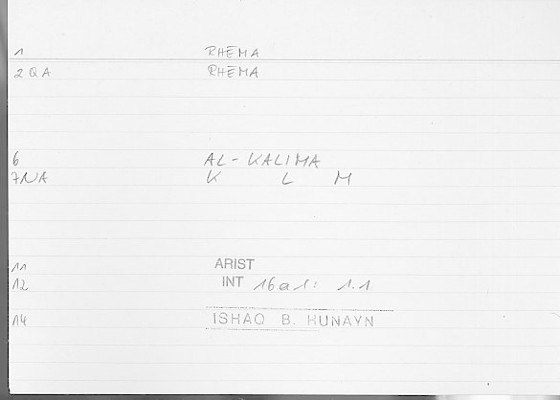 1 RHĒMA
2 QA RHĒMA
6 AL-KALIMA
7NA K L M
11 ARIST
12 INT 16a1: 1.1
14 ISHAQ B. HUNAYN